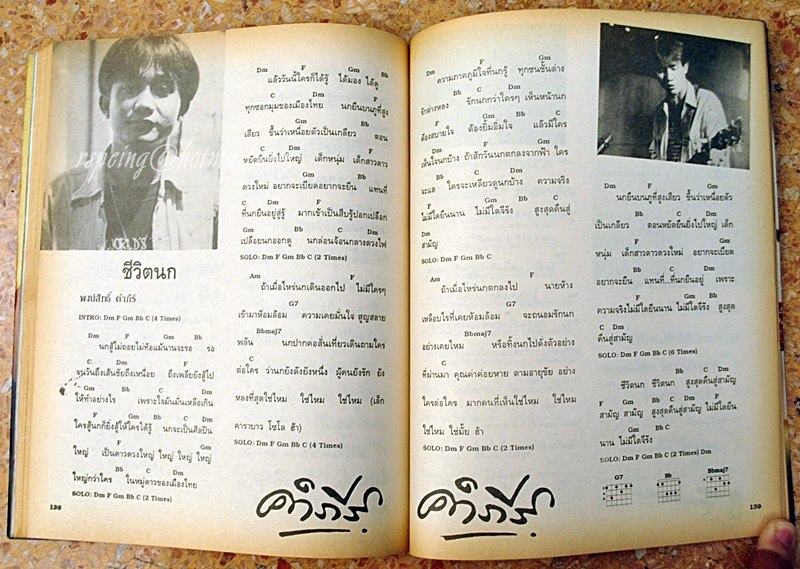 ชีวิตนก
พงษ์สิทธิ์ คำภีร์
INTRO: Dm F Gm Bb C (4 Times)
Dm F Gm Bb
นกสู้ไม่ถอยไม่ท้อแม้นานจะรอ รอ
C Dm
จนวันถึงเส้นชัยถึงเหนื่อย ถึงเพลียยังสู้ไป
Gm Bb C Dm
ให้ทำอย่างไร เพราะใจมันมันเหลือเกิน
F Gm Bb C Dm
ใครสู้นกก็ยิ่งสู้ให้ใครได้รู้ นกจะเป็นศิลปิน
F Gm
ใหญ่ เป็นดาวดวงใหญ่ ใหญ่ ใหญ่ ใหญ่
Bb C Dm
ใหญ่กว่าใคร ในหมู่ดาวของเมืองไทย
SOLO: Dm F Gm Bb C (2 Times)
136
Dm F Gm Bb
แล้ววันนี้ใครก็ได้รู้ ได้มอง ได้ดู
C Dm F
ทุกซอกมุมของเมืองไทย นกยืนบนภูที่สูง
Gm Bb
เสียว ขึ้นว่าเหนือยตัวเป็นเกลียว ตอน
C Dm F
หยัดยืนยิ่งไปใหญ่ เด็กหนุ่ม เด็กสาวดาว
Gm Bb
ดวงใหม่ อยากจะเบียดอยากจะยืน แทนที่
C Dm F
ที่นกยืนอยู่สู้รู้ มากเข้าเป็นสิบรู้ปอกเปลือก
Gm Bb C Dm
เปลือยนกออกดู นกล่อนจ้อนกลางดวงไฟ
SOLO: Dm F Gm Bb C (2 Times)
Am F
ถ้าเมื่อไหร่นกเดินออกไป ไม่มีใครๆ
G7
เข้ามาห้อมล้อม ความเคยมั่นใจ สูญสลาย
Bbmaj7
พลัน นกปากคอสั่นเที่ยวเดินถามใคร
C
ต่อใคร ว่านกยังดังยังหนึ่ง ผู้คนยังรัก ยัง
หลงที่สุดใช่ไหม ใช่ไหม ใช่ไหม (เล็ก
คาราบาว โซโล ฮ้า)
SOLO: Dm F Gm Bb C (4 Times)
คำภีร์
Dm F Gm
ความภาคภูมิใจที่นกรู้ ทุกชนชั้นต่าง
Bb C Dm
รักต่างหลง รักนกกว่าใครๆ เห็นหน้านก
F Gm Bb
ต้องสบายใจ ต้องยิ้มอิ่มใจ แล้วมีใคร
C Dm F
เห็นใจนกบ้าง ถ้าสักวันนกตกลงจากฟ้า ใคร
Gm Bb C Dm
จะแล ใครจะเหลียวดูนกบ้าง ความจริง
F Gm Bb C
ไม่มีใดยืนนาน ไม่มีใดจีรัง สูงสุดคืนสู่
Dm
สามัญ
SOLO: Dm F Gm Bb C
Am F
ถ้าเมื่อไหร่นกตกลงไป นายห้าง
G7
เหลือบไรที่เคยห้อมล้อม จะถนอมรักนก
Bbmaj7
อย่างเคยไหม หรือทิ้งนกไปดั่งตัวอย่าง
C
ที่ผ่านมา คุณค่าค่อยหาย ตามอายุขัย อย่าง
ใครต่อใคร มากคนที่เห็นใช่ไหม ใช่ไหม
ใช่ไหม ใช่มั้ย ฮ้า
SOLO: Dm F Gm Bb C (2 Times)
คำภีร์
Dm F Gm
นกยืนบนภูที่สูงเสียว ขึ้นว่าเหนือยตัว
Bb C Dm
เป็นเกลียว ตอนหยัดยืนยิ่งไปใหญ่ เด็ก
F Gm
หนุ่ม เด็กสาวดาวดวงใหม่ อยากจะเบียด
Bb C Dm
อยากจะยืน แทนที่...ที่นกยืนอยู่ เพราะ
F Gm Bb
ความจริงไม่มีใดยืนนาน ไม่มีใดจีรัง สูงสุด
C Dm
คืนสู่สามัญ
SOLO: Dm F Gm Bb C (6 Times)
Bb C Dm
ชีวิตนก ชีวิตนก สูงสุดคืนสู่สามัญ
F Gm Bb C Dm F
สามัญ สามัญ สูงสุดคืนสู่สามัญ ไม่มีใดยืน
Gm Bb C
นาน ไม่มีใดจีรัง
SOLO: Dm F Gm Bb C (2 Times) Dm
G7 Bb Bbmaj7
139